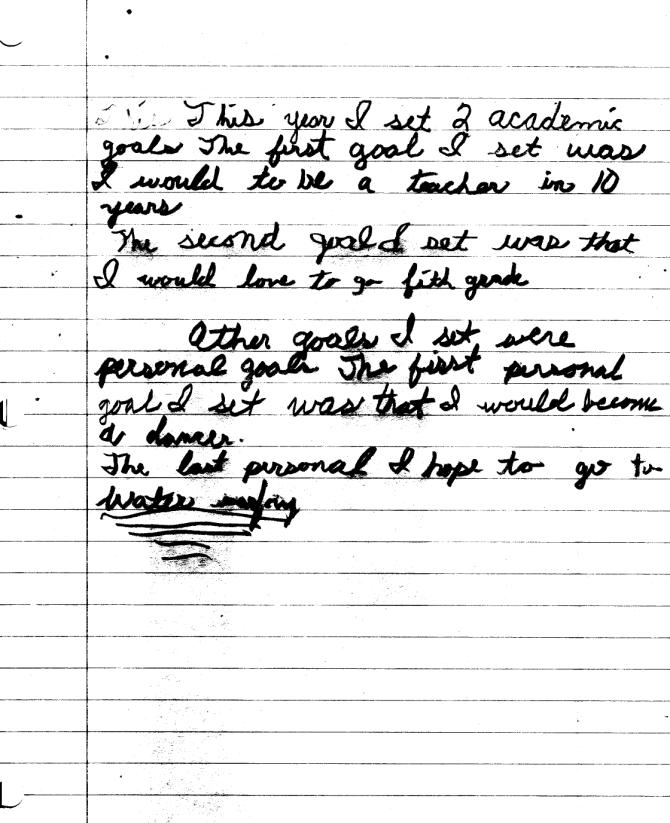 This year I set 2 academic
goals The first goal I set was
I would to be a teacher in 10
years
The second goal I set was that
I would love to go fith grade
Other goals I set were
personal goals The first personal
goal I set was that I would become
a dancer.
The last personal I hope to go to
water surfing